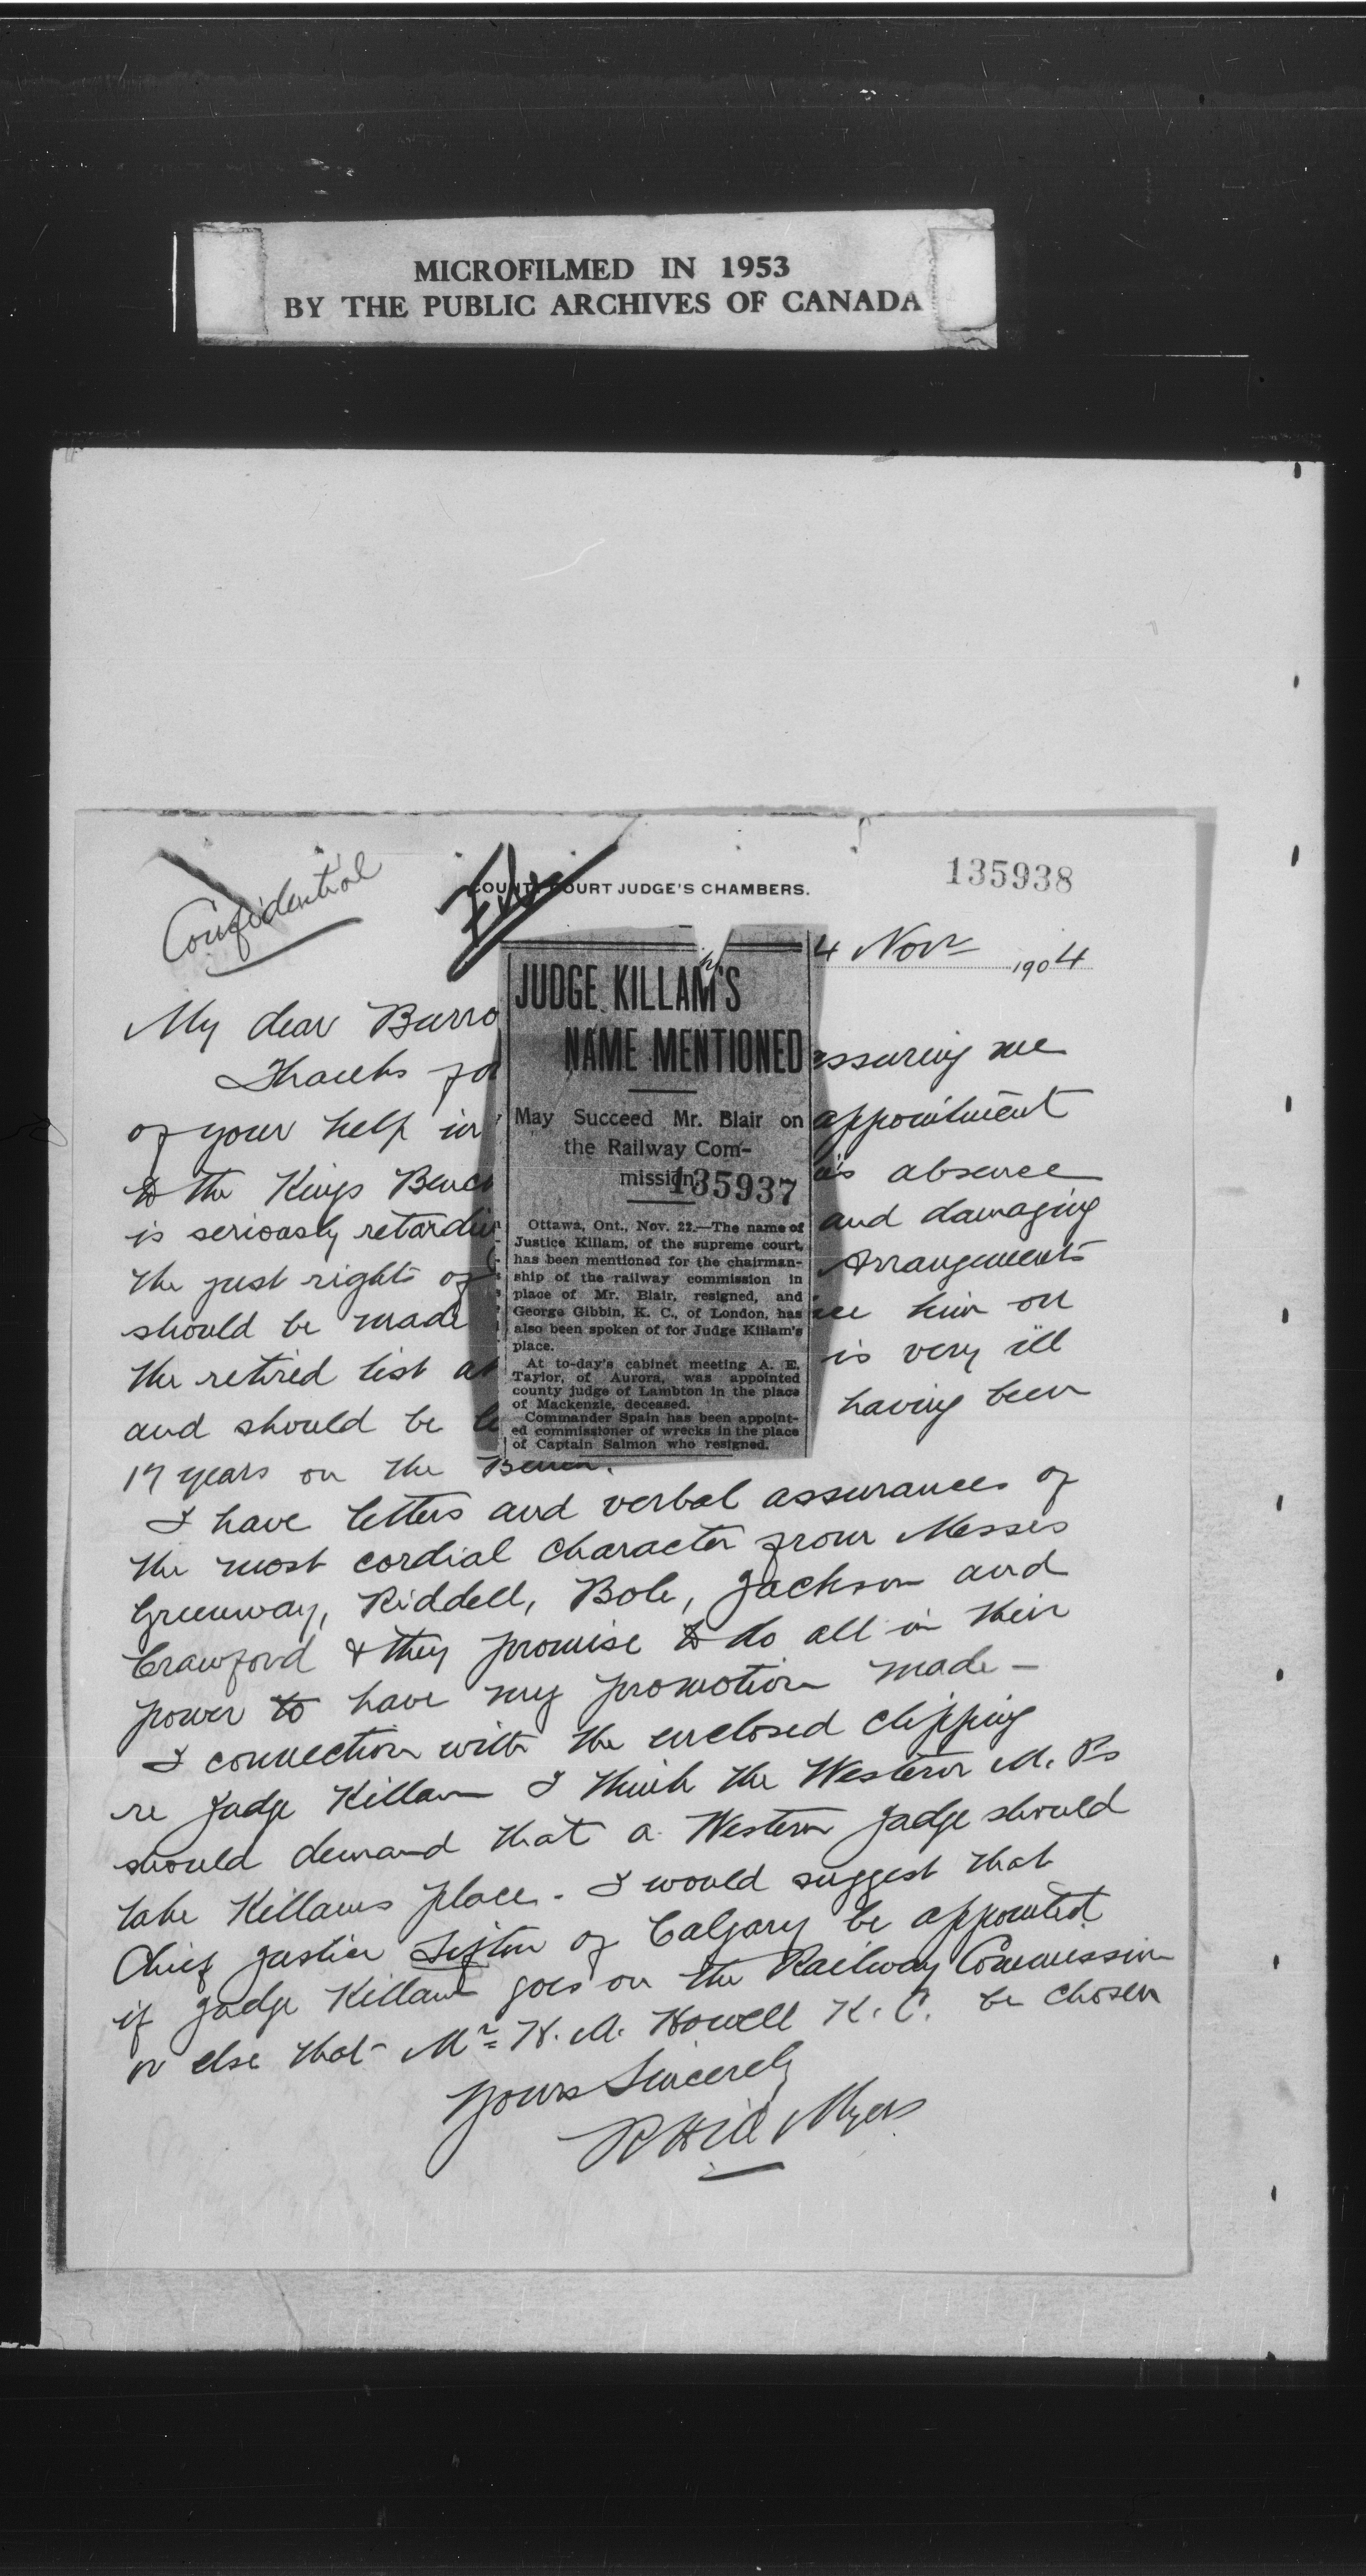 MICROFILMED IN 1953
BY THE PUBLIC ARCHIVES OF CANADA
Confidential
COUNTY COURT JUDGE'S CHAMBERS.
135938
4 Novr 1904
My dear Burro
Thanks for
of your help in
to the Kings Benc
is seriously retardin
the just rights of
should be made
the retired list
and should be
17 years on the Bench.
assuring me
appointment
absence
and damaging
Arrangements
him on
is very ill
having been
JUDGE KILLAM'S
NAME MENTIONED
May Succeed Mr. Blair on
the Railway Com-
mission
135937
Ottawa, Ont., Nov. 22.—The name of
Justice Killam, of the supreme court,
has been mentioned for the chairman-
ship of the railway commission in
place of Mr. Blair, resigned, and
George Gibbin, K. C., of London, has
also been spoken of for Judge Killam's
place.
At to-day's cabinet meeting A. E.
Taylor, of Aurora, was appointed
county judge of Lambton in the place
of Mackenzie, deceased.
Commander Spain has been appoint-
ed commissioner of wrecks in the place
of Captain Salmon who resigned.
I have letters and verbal assurances of
the most cordial character from Messrs
Greenway, Riddell, Bole, Jackson and
Crawford & they promise to do all in their
power to have my promotion made -
I connection with the enclosed clipping
re Judge Killam I think the Western M. Ps
should demand that a Western Judge should
take Killams place - I would suggest that
Chief Justice Sifton of Calgary be appointed
if Judge Killam goes on the Railway Commission
or else that Mr H. M. Howell K. C. be chosen
Yours Sincerely
R Hill Myers